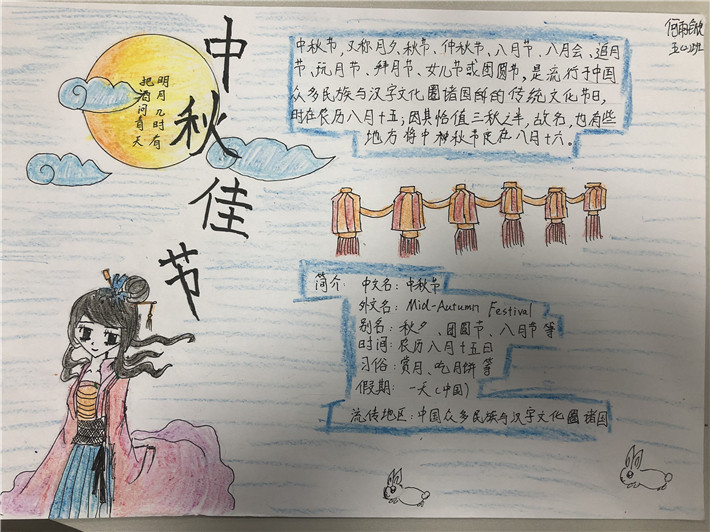 中秋佳节
明月几时有
把酒问青天
五(2)班
中秋节，又称月夕、秋节、仲秋节、八月节、八月会、追月
节、玩月节、拜月节、女儿节或团圆节，是流行于中国
众多民族与汉字文化圈诸国的传统文化节日，
时在农历八月十五；因其恰值三秋之半，故名，也有些
地方将中秋节定在八月十六。
简介 中文名：中秋节
外文名：Mid-Autumn Festival
别名：秋夕、团圆节、八月节等
时间：农历八月十五日
习俗：赏月、吃月饼等
假期：一天（中国）
流传地区：中国众多民族与汉字文化圈诸国